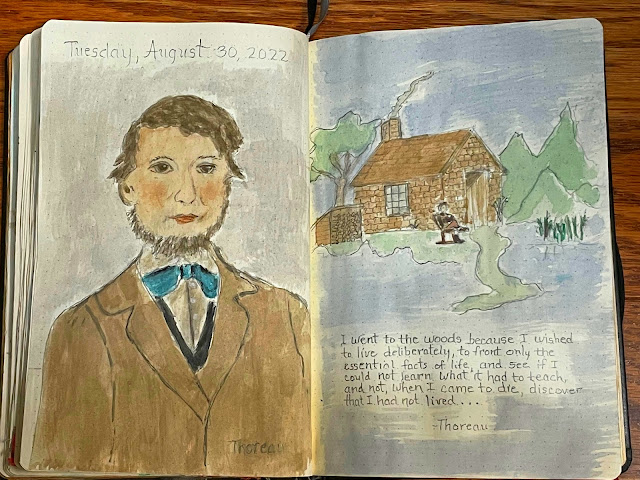 Tuesday, August 30, 2022
Thoreau
I went to the woods because I wished
to live deliberately, to front only the
essential facts of life, and see if I
could not learn what it had to teach,
and not, when I came to die, discover
that I had not lived...
-Thoreau